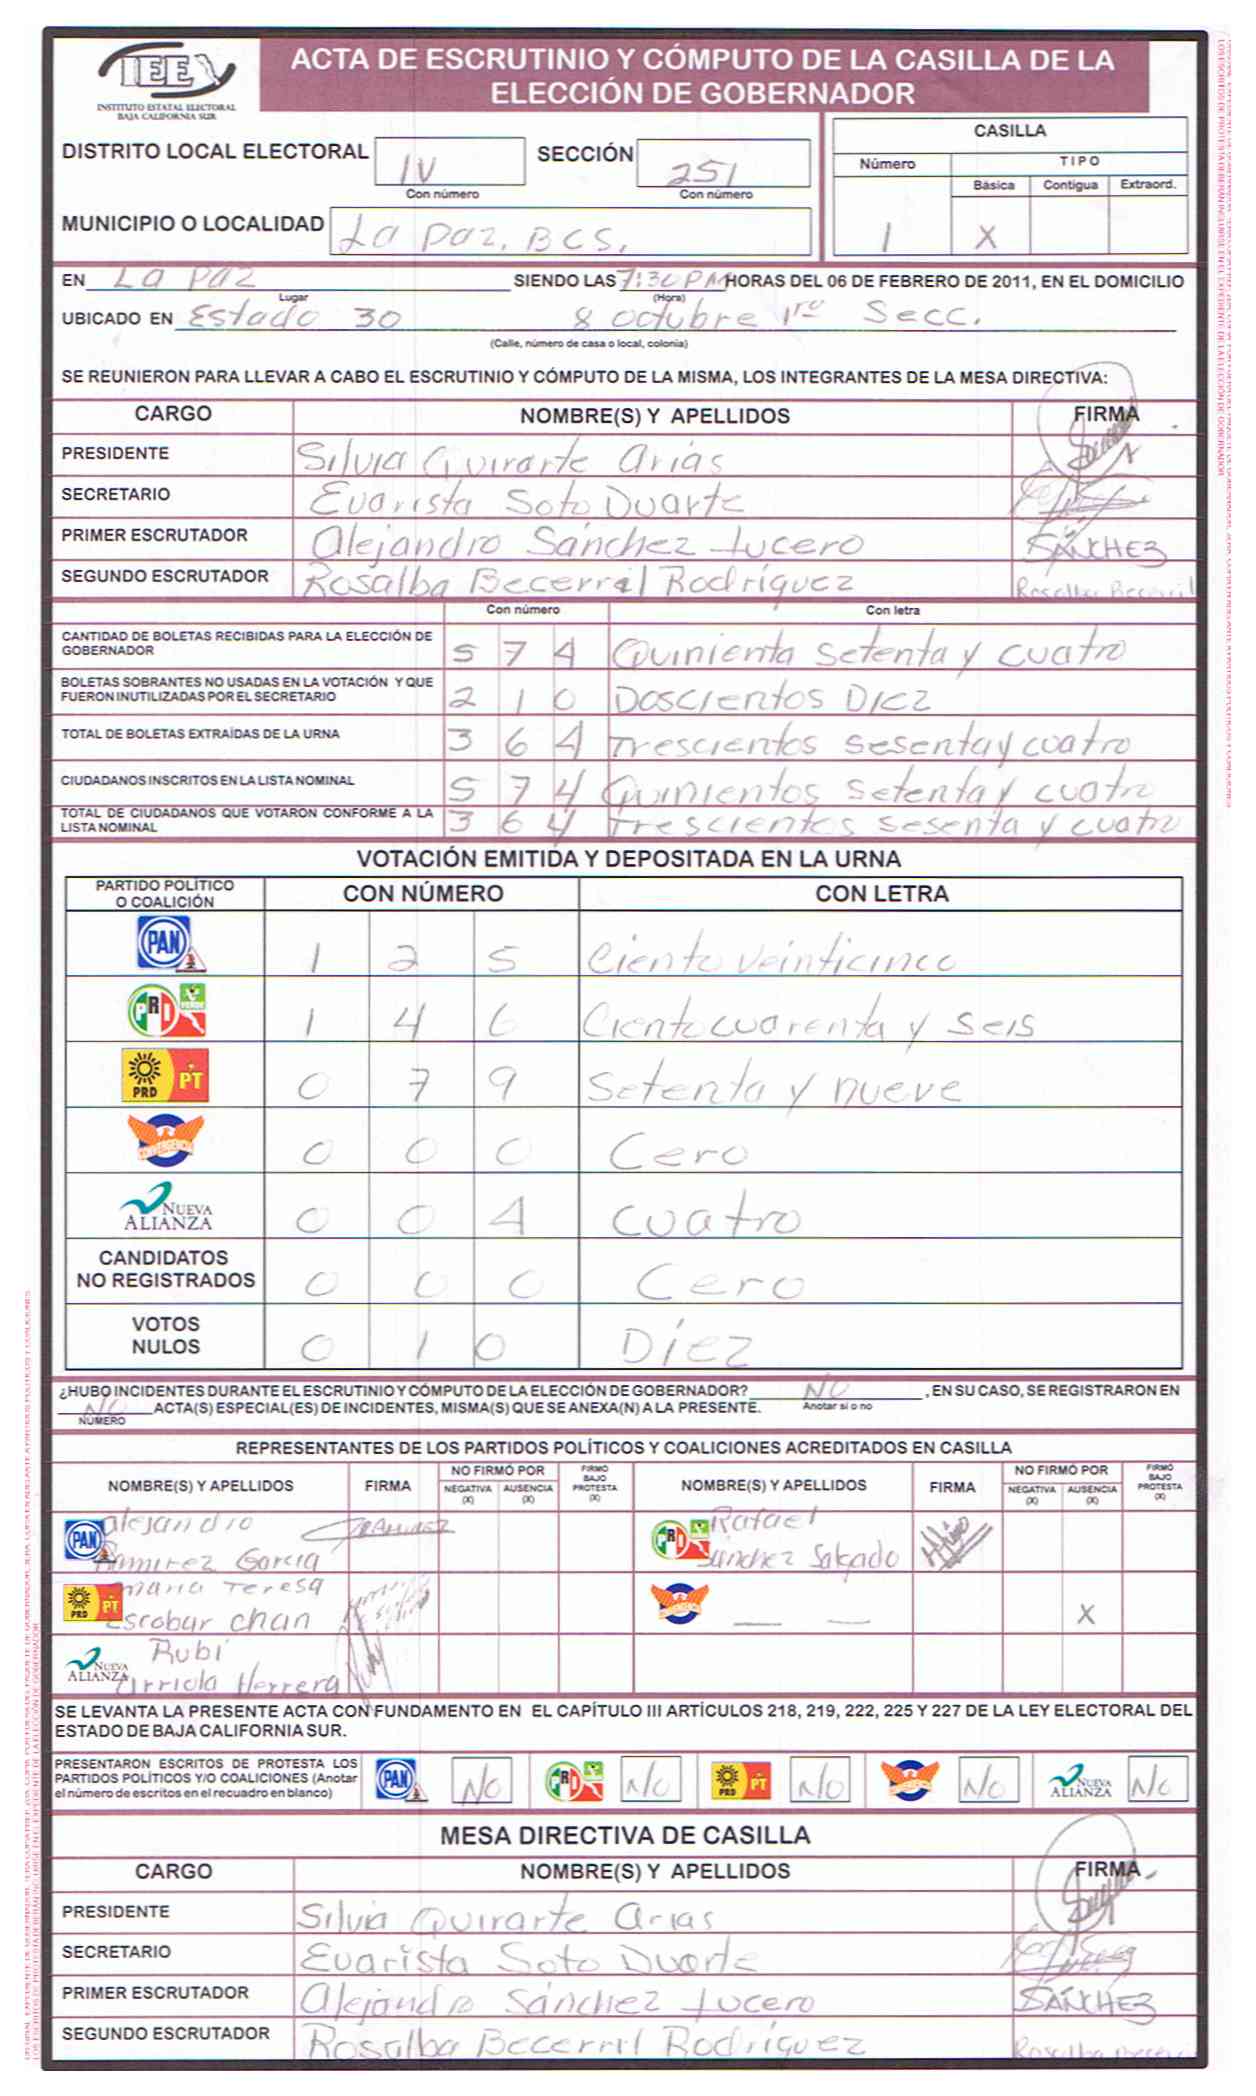 IEE
INSTITUTO ESTATAL ELECTORAL
BAJA CALIFORNIA SUR
ACTA DE ESCRUTINIO Y CÓMPUTO DE LA CASILLA DE LA
ELECCIÓN DE GOBERNADOR
DISTRITO LOCAL ELECTORAL IV SECCIÓN 251
Con número Con número
MUNICIPIO O LOCALIDAD La Paz, BCS.
CASILLA
Número TIPO
Básica Contigua Extraord.
1 X
EN La Paz SIENDO LAS 7:30 PM HORAS DEL 06 DE FEBRERO DE 2011, EN EL DOMICILIO
Lugar (Hora)
UBICADO EN Estado 30 8 octubre 1ra Secc.
(Calle, número de casa o local, colonia)
SE REUNIERON PARA LLEVAR A CABO EL ESCRUTINIO Y CÓMPUTO DE LA MISMA, LOS INTEGRANTES DE LA MESA DIRECTIVA:
CARGO NOMBRE(S) Y APELLIDOS FIRMA
PRESIDENTE Silvia Quirarte Arias
SECRETARIO Evarista Soto Duarte
PRIMER ESCRUTADOR Alejandro Sánchez Lucero SÁNCHEZ
SEGUNDO ESCRUTADOR Rosalba Becerril Rodríguez Rosalba Becerril
Con número Con letra
CANTIDAD DE BOLETAS RECIBIDAS PARA LA ELECCIÓN DE
GOBERNADOR 5 7 4 Quinienta setenta y cuatro
BOLETAS SOBRANTES NO USADAS EN LA VOTACIÓN Y QUE
FUERON INUTILIZADAS POR EL SECRETARIO 2 1 0 Doscientos Diez
TOTAL DE BOLETAS EXTRAÍDAS DE LA URNA 3 6 4 Trescientos sesenta y cuatro
CIUDADANOS INSCRITOS EN LA LISTA NOMINAL 5 7 4 Quinientos setenta y cuatro
TOTAL DE CIUDADANOS QUE VOTARON CONFORME A LA
LISTA NOMINAL 3 6 4 Trescientos sesenta y cuatro
VOTACIÓN EMITIDA Y DEPOSITADA EN LA URNA
PARTIDO POLÍTICO
O COALICIÓN CON NÚMERO CON LETRA
PAN 1 2 5 Ciento veinticinco
PRI VERDE 1 4 6 Ciento cuarenta y seis
PRD PT 0 7 9 Setenta y nueve
CONVERGENCIA 0 0 0 Cero
NUEVA ALIANZA 0 0 4 cuatro
CANDIDATOS
NO REGISTRADOS 0 0 0 Cero
VOTOS
NULOS 0 1 0 Díez
¿HUBO INCIDENTES DURANTE EL ESCRUTINIO Y CÓMPUTO DE LA ELECCIÓN DE GOBERNADOR? NO , EN SU CASO, SE REGISTRARON EN
NO ACTA(S) ESPECIAL(ES) DE INCIDENTES, MISMA(S) QUE SE ANEXA(N) A LA PRESENTE. Anotar si o no
NÚMERO
REPRESENTANTES DE LOS PARTIDOS POLÍTICOS Y COALICIONES ACREDITADOS EN CASILLA
NOMBRE(S) Y APELLIDOS FIRMA NO FIRMÓ POR NEGATIVA (X) AUSENCIA (X) FIRMÓ BAJO PROTESTA (X) NOMBRE(S) Y APELLIDOS FIRMA NO FIRMÓ POR NEGATIVA (X) AUSENCIA (X) FIRMÓ BAJO PROTESTA (X)
PAN Alejandro PRI Rafael
Ramirez Garcia Sánchez Salgado
PRD PT Maria Teresa CONVERGENCIA
Escobar Chan X
NUEVA ALIANZA Rubí
Arriola Herrera
SE LEVANTA LA PRESENTE ACTA CON FUNDAMENTO EN EL CAPÍTULO III ARTÍCULOS 218, 219, 222, 225 Y 227 DE LA LEY ELECTORAL DEL
ESTADO DE BAJA CALIFORNIA SUR.
PRESENTARON ESCRITOS DE PROTESTA LOS
PARTIDOS POLÍTICOS Y/O COALICIONES (Anotar
el número de escritos en el recuadro en blanco)
PAN No PRI No PRD PT No No NUEVA ALIANZA No
MESA DIRECTIVA DE CASILLA
CARGO NOMBRE(S) Y APELLIDOS FIRMA
PRESIDENTE Silvia Quirarte Arias
SECRETARIO Evarista Soto Duarte
PRIMER ESCRUTADOR Alejandro Sánchez Lucero SÁNCHEZ
SEGUNDO ESCRUTADOR Rosalba Becerril Rodríguez Rosalba Becerril